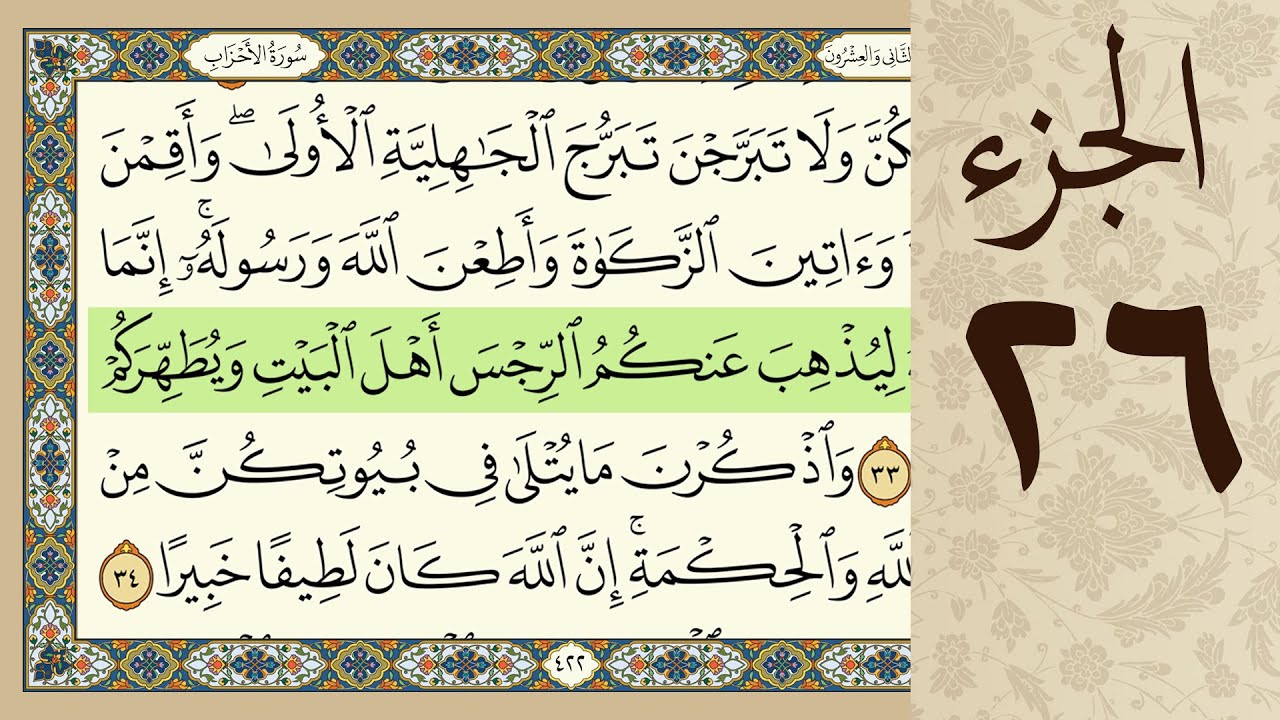 سُورَةُ الأَحْزَابِ
الثَّانِي وَالعِشْرُونَ
كُنَّ وَلَا تَبَرَّجْنَ تَبَرُّجَ ٱلْجَٰهِلِيَّةِ ٱلْأُولَىٰ ۖ وَأَقِمْنَ
وَءَاتِينَ ٱلزَّكَوٰةَ وَأَطِعْنَ ٱللَّهَ وَرَسُولَهُۥٓ ۚ إِنَّمَا
لِيُذْهِبَ عَنكُمُ ٱلرِّجْسَ أَهْلَ ٱلْبَيْتِ وَيُطَهِّرَكُمْ
٣٣ وَٱذْكُرْنَ مَا يُتْلَىٰ فِي بُيُوتِكُنَّ مِنْ
للَّهِ وَٱلْحِكْمَةِ ۚ إِنَّ ٱللَّهَ كَانَ لَطِيفًا خَبِيرًا ٣٤
٤٢٢
الجزء
٢٦